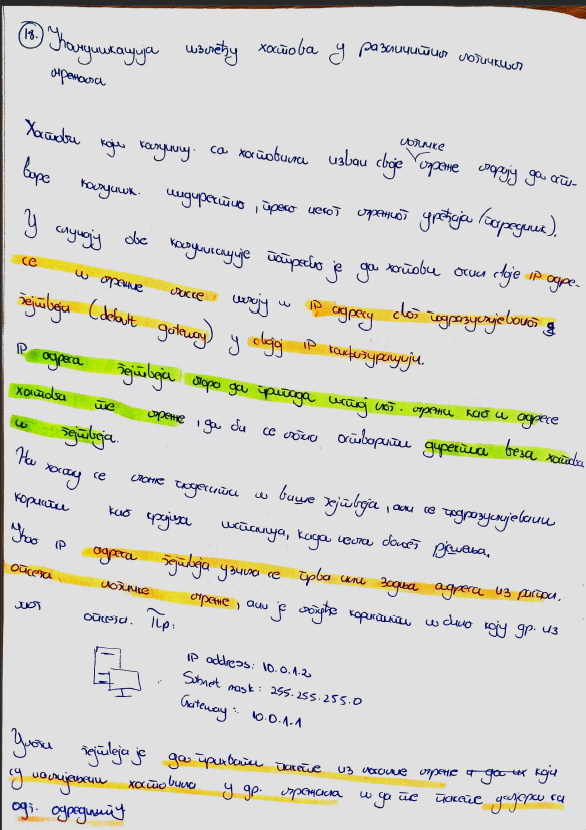 18. Комуникација између хостова у различитим логичким
мрежама
Хостови који комуниц. са хостовима изван своје логичке мреже морају да оства-
варе комуник. индиректно, преко неког мрежног уређаја (посредник).
У случају ове комуникације потребно је да хостови осим своје IP адре-
се и мрежне маске имају и IP адресу свог подразумјеваног g
гејтвеја (default gateway) у својој IP конфигурацији.
IP адреса гејтвеја мора да припада истој лог. мрежи као и адресе
хостова те мреже, да би се могла остварити директна веза хостова
и гејтвеја.
На хосту се може подесити и више гејтвеја, али се подразумјевани
користи као крајња инстанца, када нема бољег рјешења.
Као IP адреса гејтвеја узима се прва или задња адреса из распол.
опсега логичке мреже, али је могуће користити и било коју др. из
тог опсега. Пр:
IP address: 10.0.1.2
Subnet mask: 255.255.255.0
Gateway: 10.0.1.1
Улога гејтвеја је да прихвати пакете из локалне мреже а да их који
су намијењени хостовима у др. мрежама и да те пакете
одг. одредишту